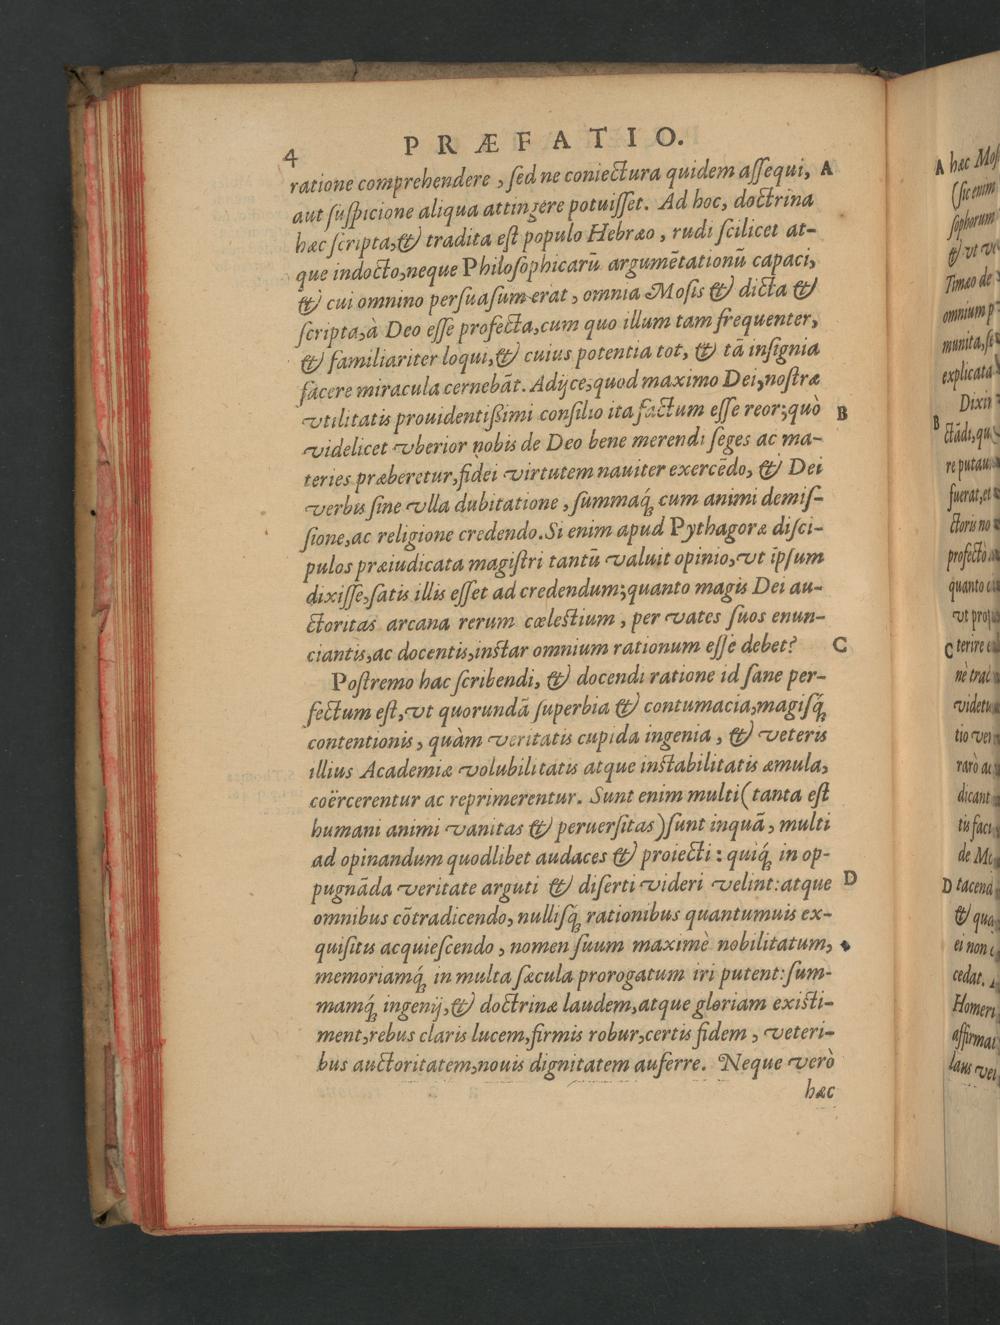 4
PRÆFATIO.
ratione comprehendere, ſed ne coniectura quidem aſſequi, A
aut ſuſpicione aliqua attingere potuiſſet. Ad hoc, doctrina
hæc ſcripta, & tradita eſt populo Hebræo, rudi ſcilicet at-
que indocto, neque Philoſophicarū argumētationū capaci,
& cui omnino perſuaſum erat, omnia Moſis & dicta &
ſcripta, à Deo eſſe profecta, cum quo illum tam frequenter,
& familiariter loqui, & cuius potentia tot, & tā inſignia
facere miracula cernebāt. Adijce, quod maximo Dei, noſtræ
vtilitatis prouidentißimi conſilio ita factum eſſe reor; quò B
videlicet vberior nobis de Deo bene merendi ſeges ac ma-
teries præberetur, fidei virtutem nauiter exercēdo, & Dei
verbis ſine vlla dubitatione, ſummaq́ꝫ cum animi demiſ-
ſione, ac religione credendo. Si enim apud Pythagoræ diſci-
pulos præiudicata magiſtri tantū valuit opinio, vt ipſum
dixiſſe, ſatis illis eſſet ad credendum; quanto magis Dei au-
ctoritas arcana rerum cæleſtium, per vates ſuos enun-
ciantis, ac docentis, inſtar omnium rationum eſſe debet? C
Poſtremo hac ſcribendi, & docendi ratione id ſane per-
fectum eſt, vt quorundā ſuperbia & contumacia, magiſq́ꝫ
contentionis, quàm veritatis cupida ingenia, & veteris
illius Academiæ volubilitatis atque inſtabilitatis æmula,
coërcerentur ac reprimerentur. Sunt enim multi (tanta eſt
humani animi vanitas & peruerſitas) ſunt inquā, multi
ad opinandum quodlibet audaces & proiecti: quiq́ꝫ in op-
pugnāda veritate arguti & diſerti videri velint: atque D
omnibus cōtradicendo, nulliſq́ꝫ rationibus quantumuis ex-
quiſitis acquieſcendo, nomen ſuum maximè nobilitatum,
memoriamq́ꝫ in multa ſæcula prorogatum iri putent: ſum-
mamq́ꝫ ingenij, & doctrinæ laudem, atque gloriam exiſti-
ment, rebus claris lucem, firmis robur, certis fidem, veteri-
bus auctoritatem, nouis dignitatem auferre. Neque verò
hæc
A hæc
(ſic enim
ſophorum
& vt
Timæo de
omnium
munita,
explicata
B
re
fuerat, et
ctoris no
profectò
quanto
vt
C terire
nè
tio
rarò ac
dicant
de
D
&
ei non
cedat.
Homeri